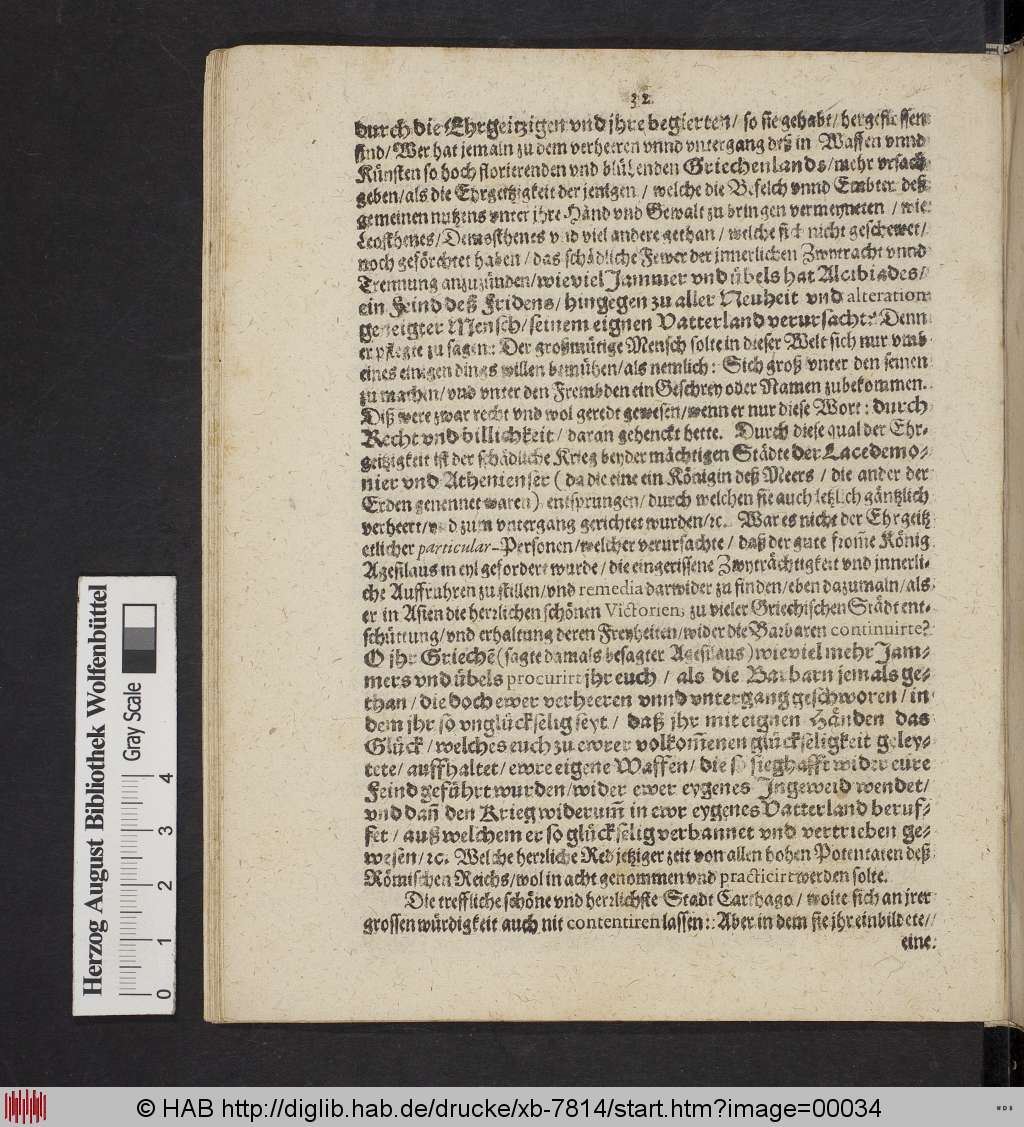 32
durch die Ehrgeitzigen vnd jhre begierten / so sie gehabt / hergeflossen
sind / Wer hat jemaln zu dem verheeren vnnd vntergang deß in Waffen vnnd
Künsten so hoch florierenden vnd blühenden Griechenlands / mehr vrsach
geben / als die Ehrgeitzigkeit der jenigen / welche die Befelch vnnd Embter deß
gemeinen nutzens vnter jhre Händ vnd Gewalt zu bringen vermeyneten / wie
Leosthenes / Demosthenes vnd viel andere gethan / welche sich nicht geschewet /
noch geförchtet haben / das schädliche Fewer der jnnerlichen Zwytracht vnnd
Trennung anzuzünden / wieviel Jammer vnd übels hat Alcibiades /
ein Feind deß Fridens / hingegen zu aller Neuheit vnd alteration
geneigter Mensch / seinem eignen Vatterland verursacht: Denn
er pflegte zu sagen: Der großmütige Mensch solte in dieser Welt sich nur vmb
eines einigen dings willen bemühen / als nemlich: Sich groß vnter den seinen
zu machen / vnd vnter den Frembden ein Geschrey oder Namen zubekommen.
Diß were zwar recht vnd wol geredt gewesen / wenn er nur diese Wort: durch
Recht vnd billichkeit / daran gehenckt hette. Durch diese qual der Ehr-
geitzigkeit ist der schädliche Krieg beyder mächtigen Städte der Lacedemo-
nier vnd Athenienser ( da die eine ein Königin deß Meers / die ander der
Erden genennet waren ) entsprungen / durch welchen sie auch letzlich gäntzlich
verheert / vnd zum vntergang gerichtet wurden / ꝛc. War es nicht der Ehrgeitz
etlicher particular-Personen / welcher verursachte / daß der gute from̄e König
Agesilaus in eyl gefordert wurde / die eingerissene Zwyträchtigkeit vnd jnnerli-
che Auffruhren zu stillen / vnd remedia darwider zu finden / eben dazumaln / als
er in Asien die herꝛlichen schönen Victorien, zu vieler Griechischen Städt ent-
schüttung / vnd erhaltung deren Freyheiten / wider die Barbaren continuirte?
O jhr Griechẽ (sagte damals besagter Agesilaus) wieviel mehr Jam-
mers vnd übels procurirt jhr euch / als die Barbarn jemals ge-
than / die doch ewer verheeren vnnd vntergang geschworen / in
dem jhr so vnglückselig seyt / daß jhr mit eignen Händen das
Glück / welches euch zu ewrer volkom̃enen glückseligkeit geley-
tete / auffhaltet / ewre eigene Waffen / die so sieghafft wider eure
Feind geführt wurden / wider ewer eygenes Jngeweid wendet /
vnd dañ den Krieg widerum̃ in ewr eygenes Vatterland beruf-
fet / auß welchem er so glückselig verbannet vnd vertrieben ge-
wesen / ꝛc. Welche herꝛliche Red jetziger zeit von allen hohen Potentaten deß
Römischen Reichs / wol in acht genommen vnd practicirt werden solte.
Die treffliche schöne vnd herꝛlichste Stadt Carthago / wolte sich an jrer
grossen würdigkeit auch nit contentiren lassen: Aber in dem sie jhr einbildete /
eine
Herzog August Bibliothek Wolfenbüttel
Gray Scale
0 1 2 3 4
© HAB http://diglib.hab.de/drucke/xb-7814/start.htm?image=00034